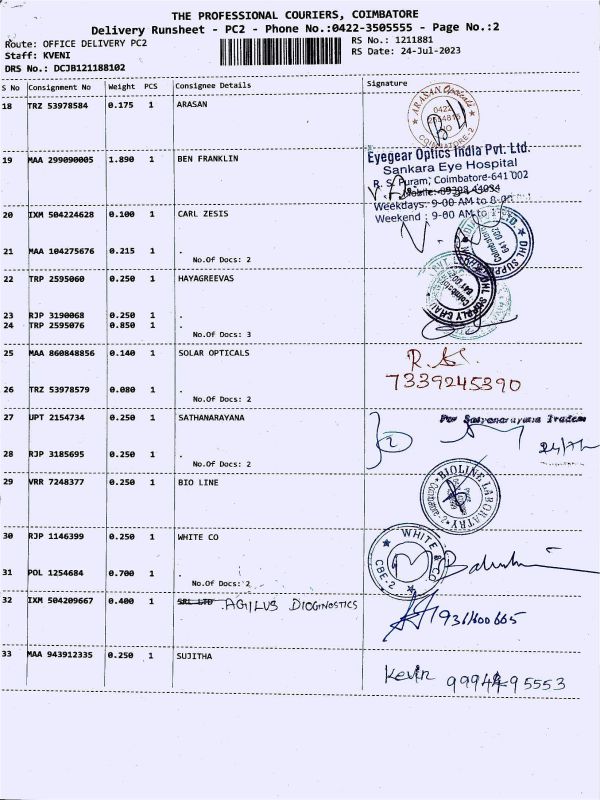 THE PROFESSIONAL COURIERS, COIMBATORE
Delivery Runsheet - PC2 - Phone No.:0422-3505555 - Page No.:2
Route: OFFICE DELIVERY PC2
Staff: KVENI
DRS No.: DCJB121188102
RS No.: 1211881
RS Date: 24-Jul-2023
S No Consignment No Weight PCS Consignee Details Signature
18 TRZ 53978584 0.175 1 ARASAN
ARASAN Opticals
0422
COIMBATORE-2
19 MAA 299090005 1.890 1 BEN FRANKLIN
Eyegear Optics India Pvt. Ltd.
Sankara Eye Hospital
R. S. Puram, Coimbatore-641 002
Weekdays: 9-00 AM to 8-00
Weekend : 9-00 AM to
20 IXM 504224628 0.100 1 CARL ZESIS
21 MAA 104275676 0.215 1 .
No.Of Docs: 2
DHL SUPPLY
Coimbatore
641 002
22 TRP 2595060 0.250 1 HAYAGREEVAS
23 RJP 3190068 0.250 1 .
24 TRP 2595076 0.850 1 .
No.Of Docs: 3
DHL SUPPLY CHAIN
Coimbatore
641 002
25 MAA 860848856 0.140 1 SOLAR OPTICALS
26 TRZ 53978579 0.080 1 .
No.Of Docs: 2
7339245390
27 UPT 2154734 0.250 1 SATHANARAYANA
28 RJP 3185695 0.250 1 .
No.Of Docs: 2
2
For Sathyanarayana Traders
24/7/
29 VRR 7248377 0.250 1 BIO LINE
BIOLINE LABORATRY
30 RJP 1146399 0.250 1 WHITE CO
31 POL 1254684 0.700 1 .
No.Of Docs: 2
WHITE & CO
CBE-2
32 IXM 504209667 0.400 1 SRL LTD AGILUS DIOGNOSTICS
33 MAA 943912335 0.250 1 SUJITHA
Kevin